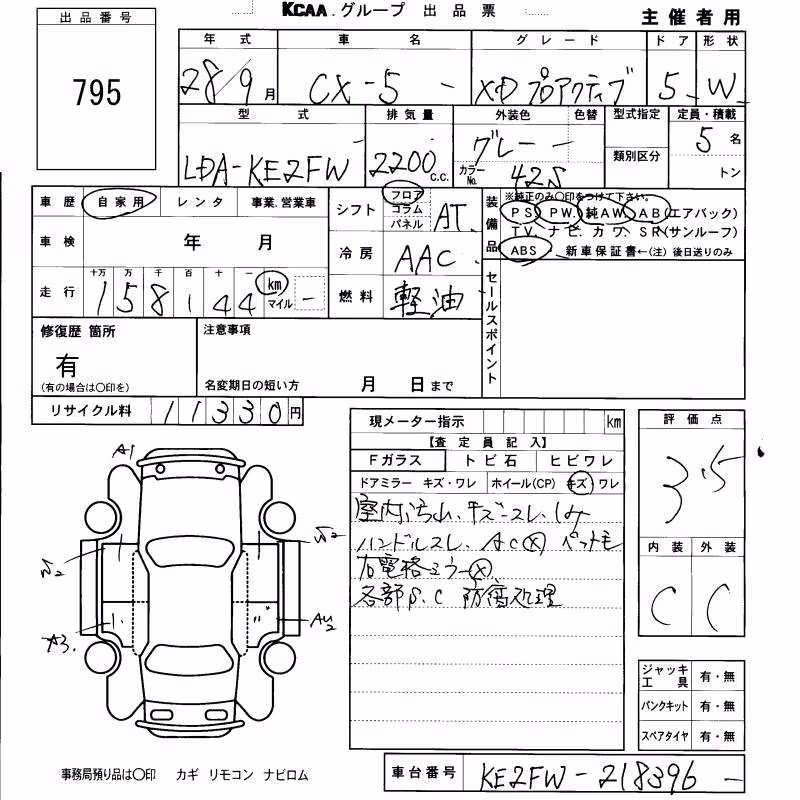 KCAA.グループ 出品票
主催者用
出品番号
795
年式 車名 グレード ドア 形状
28/9月 CX-5 - XD プロアクティブ 5 - W -
型式 排気量 外装色 色替 型式指定 定員・積載
LDA-KE2FW 2200c.c. グレー - 類別区分 5名
カラーNo. 42S トン
車歴 自家用 レンタ 事業.営業車
シフト フロア コラム パネル AT
装備品 ※純正のみ〇印をつけて下さい。
PS PW. 純AW. AB(エアバック)
TV. ナビ. カワ. SR(サンルーフ)
ABS 新車保証書←(注)後日送りのみ
車検 年 月
冷房 AAC
走行 十万 万 千 百 十 一 km マイル
158144 -
燃料 軽油
セールスポイント
修復歴 箇所
有
(有の場合は〇印を)
注意事項
名変期日の短い方 月 日まで
リサイクル料 11330円
現メーター指示 km
【査定員記入】
Fガラス トビ石 ヒビワレ
ドアミラー キズ・ワレ ホイール(CP) キズ ワレ
室内汚れ、キズ、スレ、しみ
ハンドルスレ、AC☒ ペット毛
右電格ミラー☒
各部S.C 防腐処理
評価点
3.5
内装 外装
C C
A1
W2
A3.
AU2
ジャッキ工具 有・無
パンクキット 有・無
スペアタイヤ 有・無
事務局預り品は〇印 カギ リモコン ナビロム
車台番号 KE2FW-218396 -